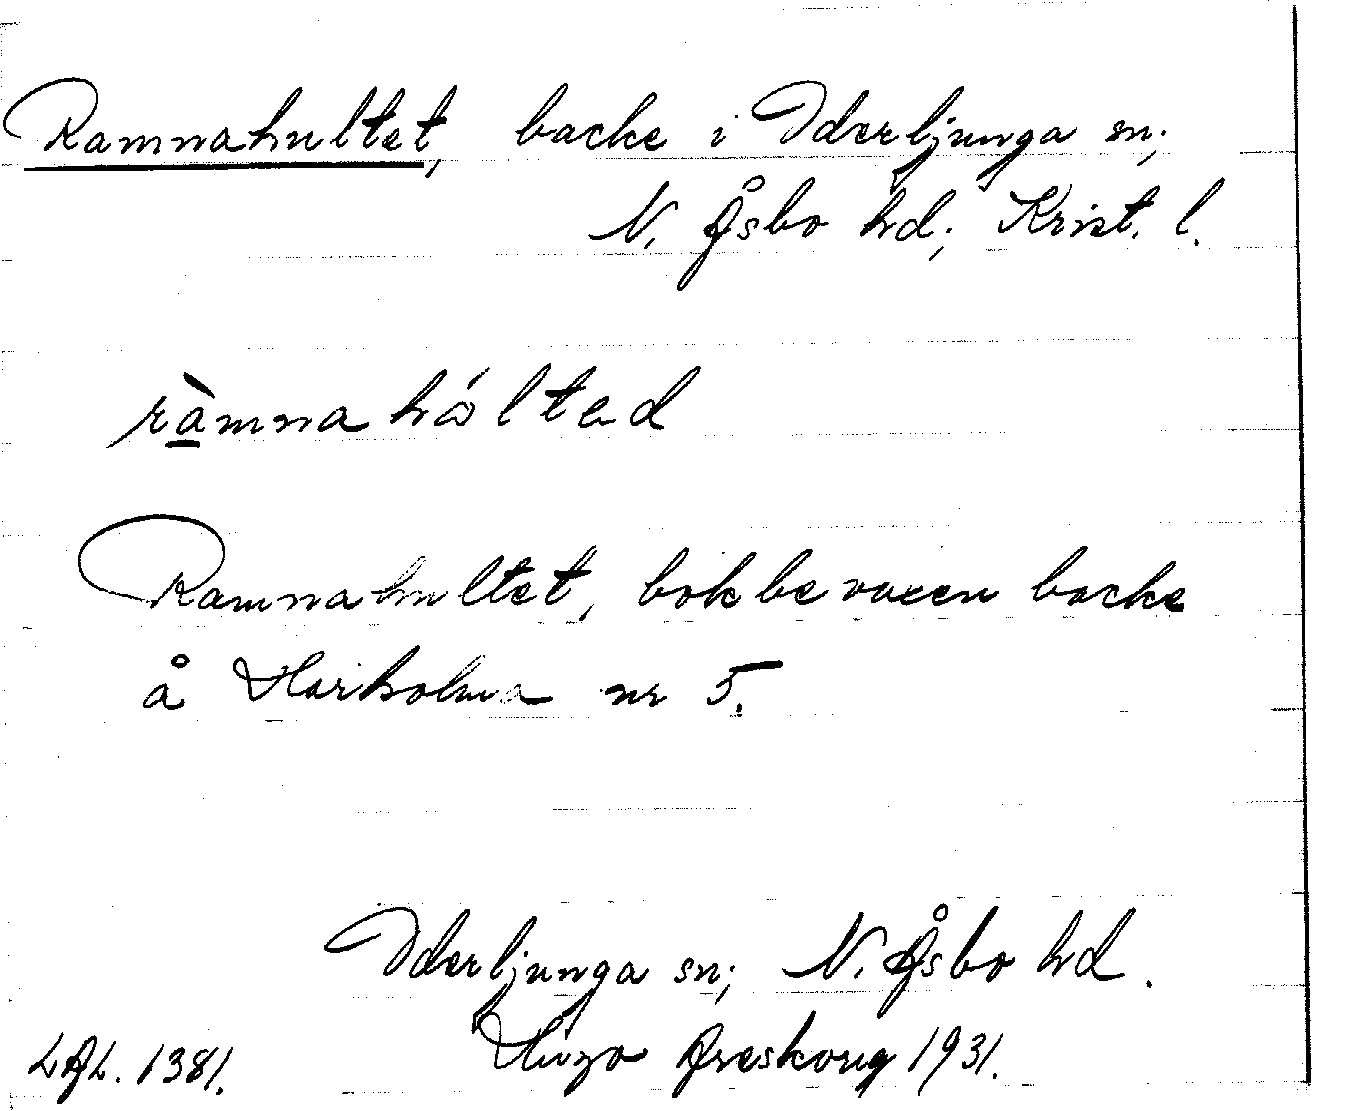 Ramnahultet, backe i Iderljunga sn;
N. Åsbo hd; Krist. l.
ràmnahóltad
Ramnahultet, bokbevuxen backe
å Harholma nr 5.
Iderljunga sn; N. Åsbo hd.
LAL. 1381. Hugo Areskoug 1931.